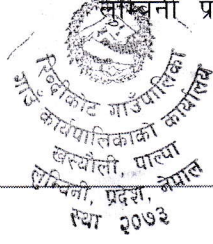 लुम्बिनी प्र
रिब्दीकोट गाउँपालिका
गाउँ कार्यपालिकाको कार्यालय
खस्यौली, पाल्पा
लुम्बिनी, प्रदेश, नेपाल
स्था २०७३